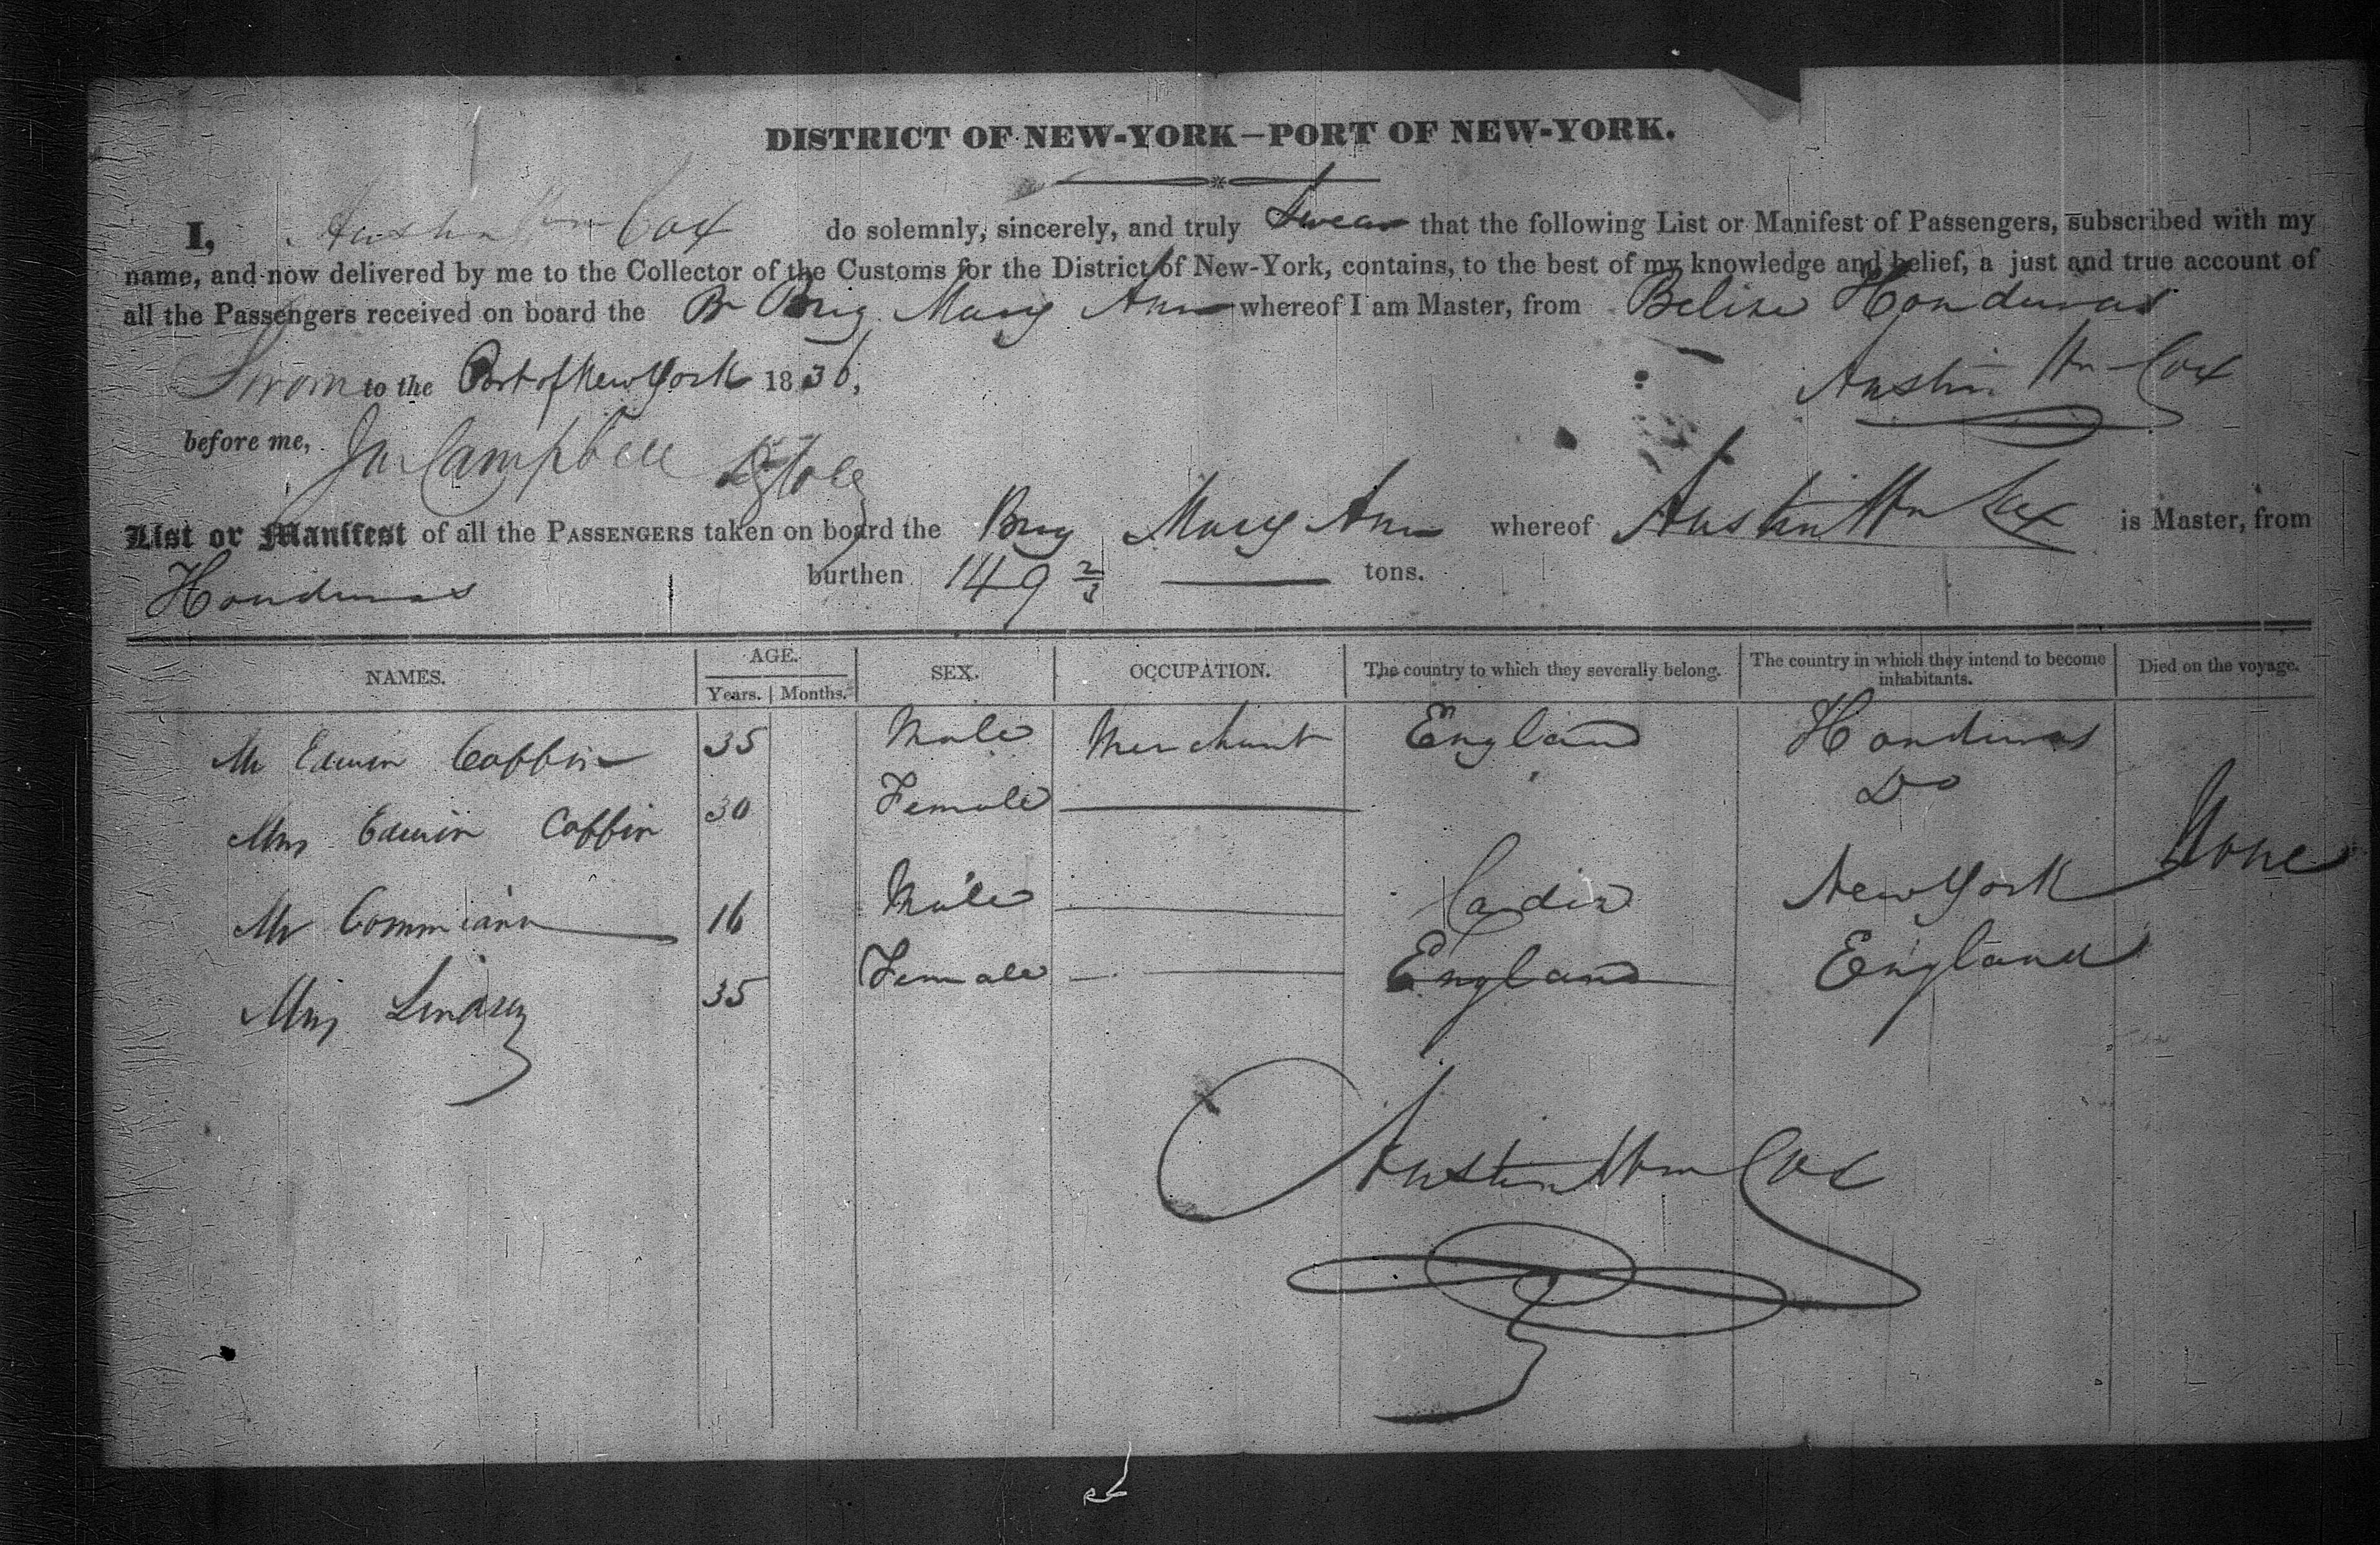 DISTRICT OF NEW-YORK—PORT OF NEW-YORK.
I, Austin Wm Cox do solemnly, sincerely, and truly Swear that the following List or Manifest of Passengers, subscribed with my
name, and now delivered by me to the Collector of the Customs for the District of New-York, contains, to the best of my knowledge and belief, a just and true account of
all the Passengers received on board the Br Brig Mary Ann whereof I am Master, from Belize Honduras
Sworn to the Port of New York 1836,
Austin Wm Cox
before me, Campbell
List or Manifest of all the PASSENGERS taken on board the Brig Mary Ann whereof Austin Wm Cox is Master, from
Honduras burthen 149 2/3 tons.
NAMES. AGE. SEX. OCCUPATION. The country to which they severally belong. The country in which they intend to become inhabitants. Died on the voyage.
Years. Months.
Mr Edwin Coffin 35 Male Merchant England Honduras
Mrs Edwin Coffin 30 Female Do
Mr 16 Male Cadiz New York None
Lindsey 35 Female England England
Austin Wm Cox